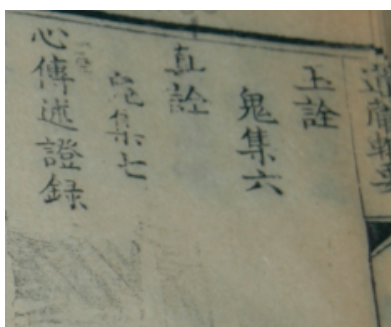 道藏輯要
玉詮
鬼集六
真詮
鬼集七
心傳述證録